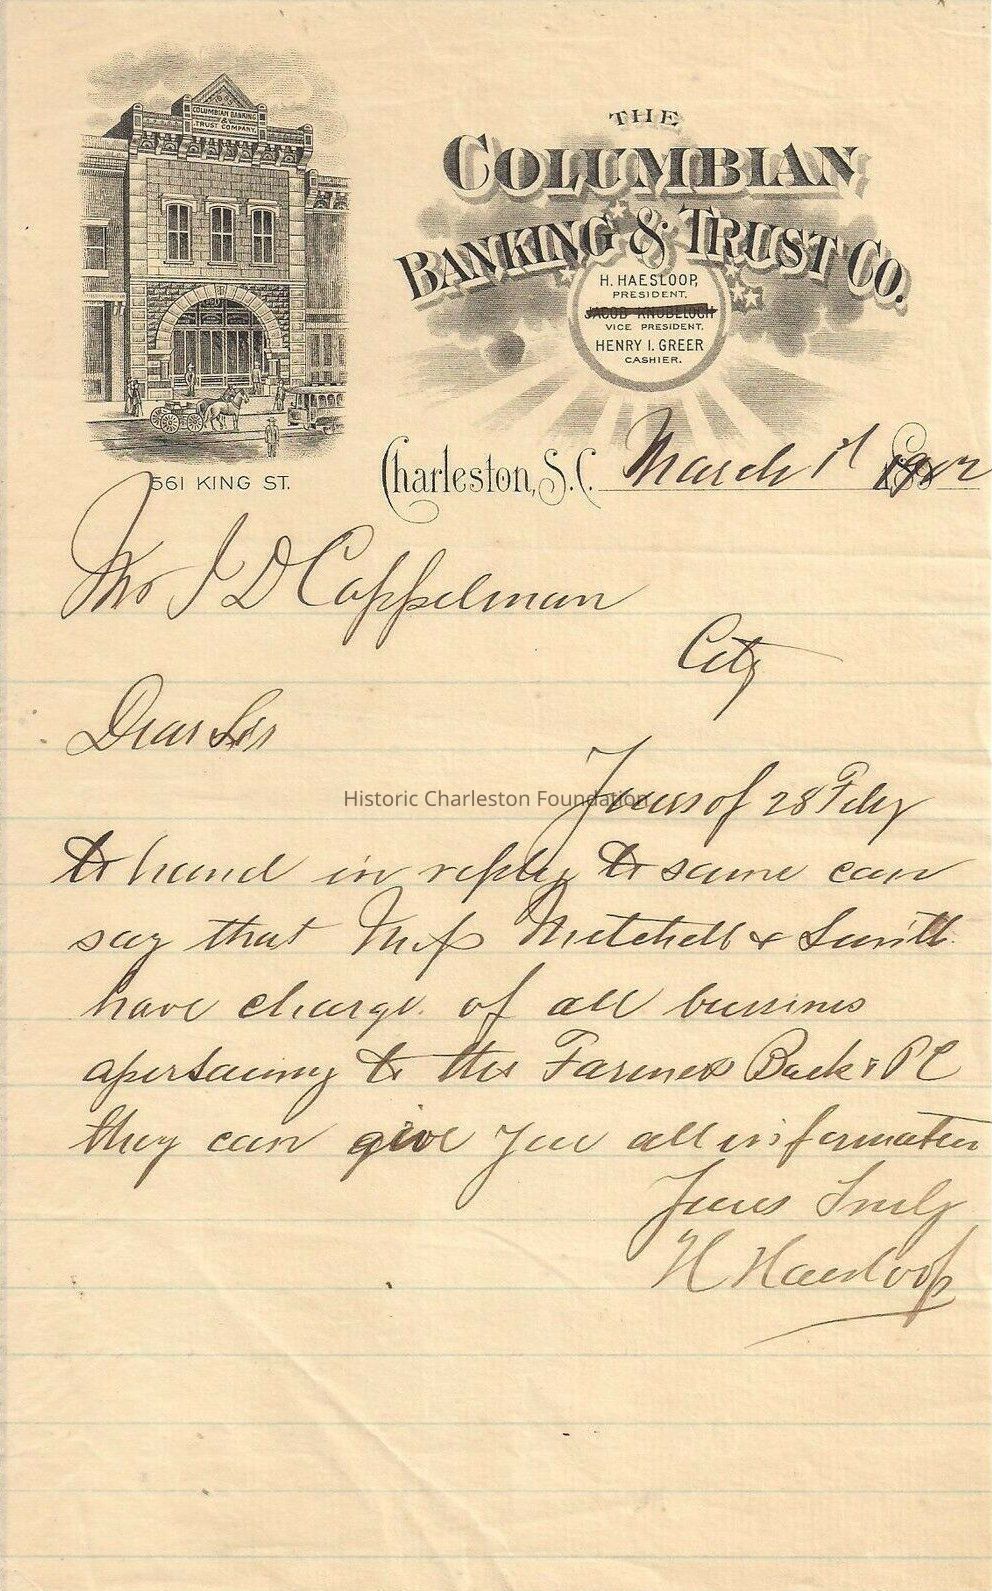 COLUMBIAN BANKING
&
TRUST COMPANY.
THE
COLUMBIAN
BANKING & TRUST CO.
H. HAESLOOP,
PRESIDENT.
JACOB KNOBELOCH
VICE PRESIDENT.
HENRY I. GREER
CASHIER.
561 KING ST.
Charleston, S.C. March 1st 1902
Mr J D Cappelman
City
Dear Sir
Yours of 28 Feby
Historic Charleston Foundation
to hand in reply to same can
say that Mess Mitchell & Smith
have charge of all bussines
apertaining to the Farmers
they can give you all information
Yours Truly
H Haesloop